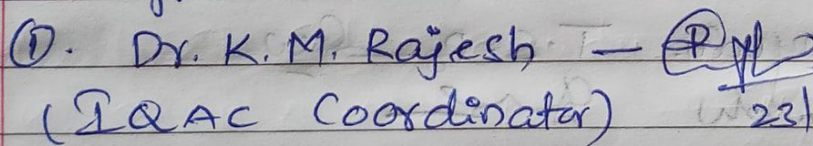 ①. Dr. K. M. Rajesh -
(IQAC Coordinator) 23